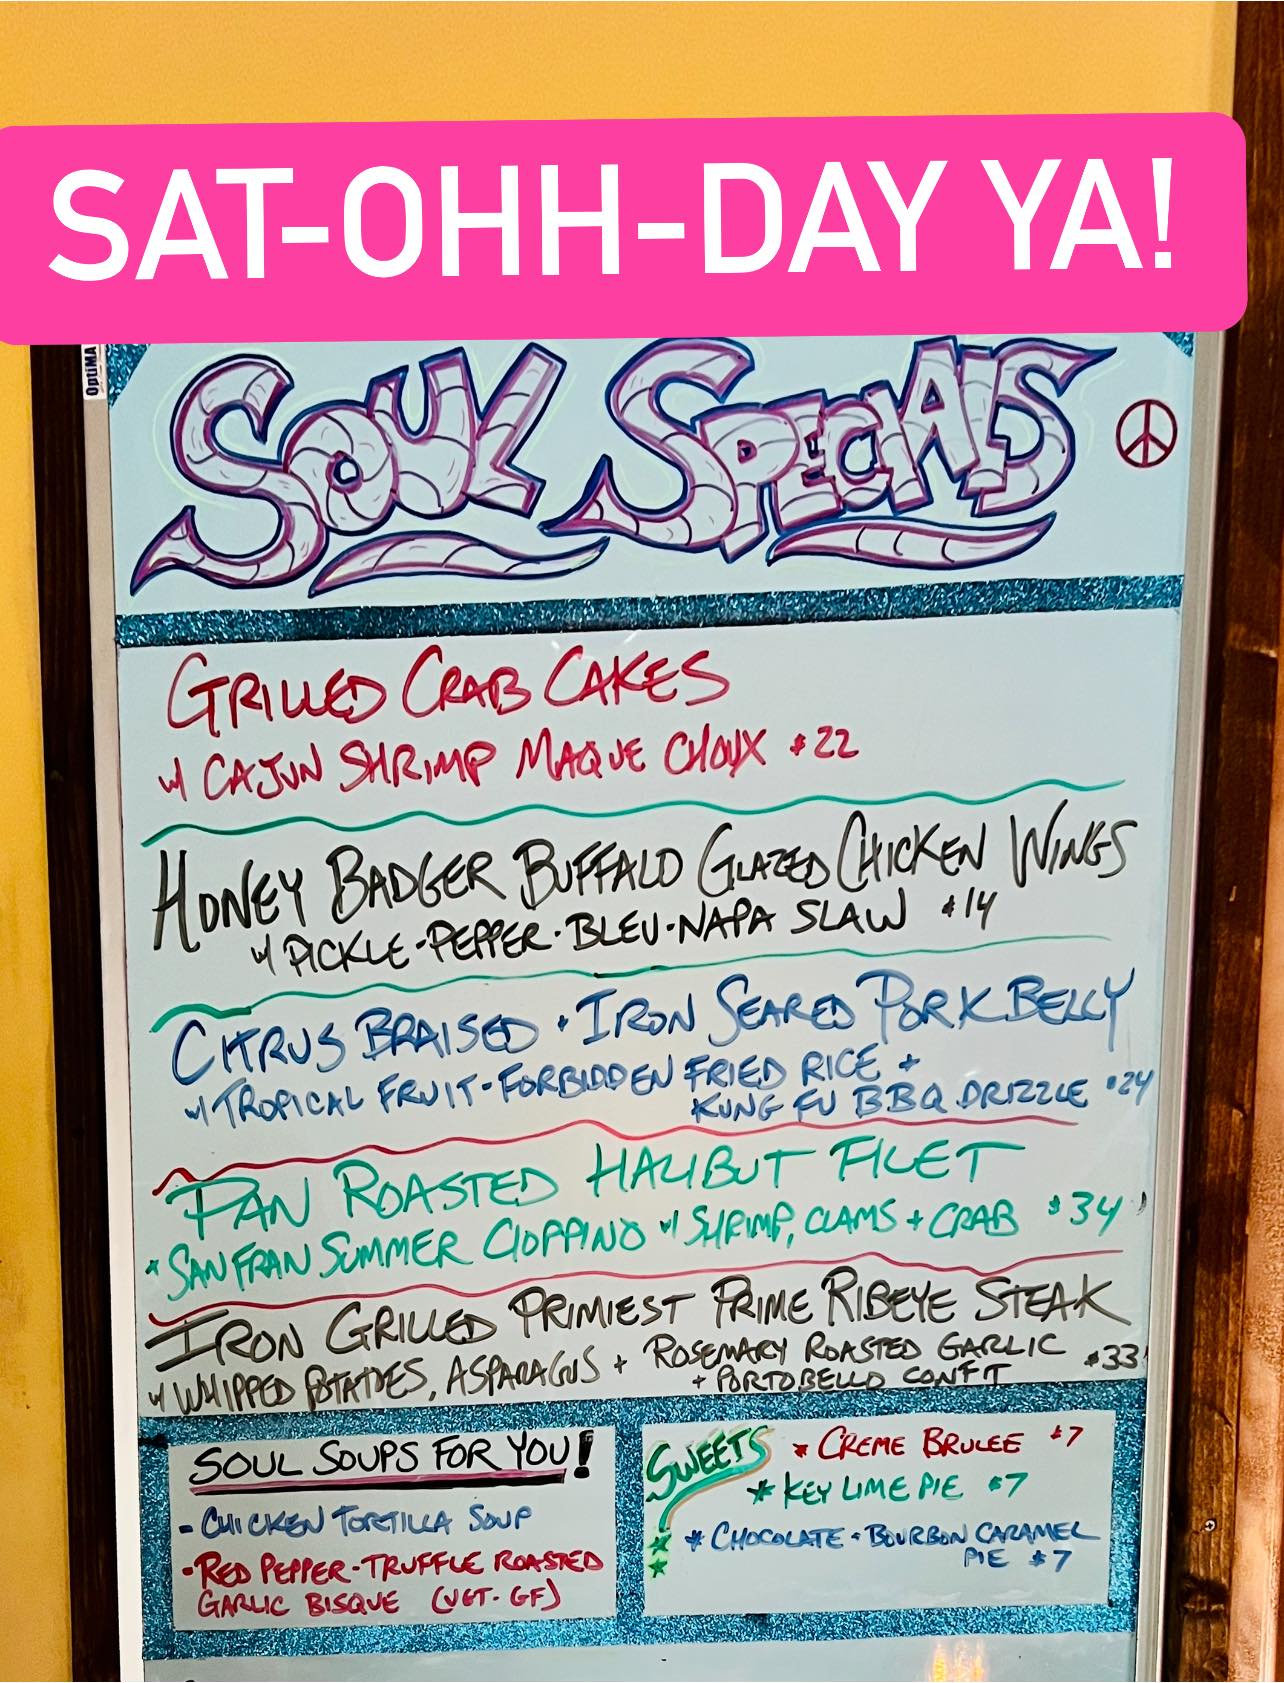 SAT-OHH-DAY YA!
OptiMA
SOUL SPECIALS
GRILLED CRAB CAKES
w/ CAJUN SHRIMP MAQUE CHOUX $22
HONEY BADGER BUFFALO GLAZED CHICKEN WINGS
w/ PICKLE-PEPPER-BLEU-NAPA SLAW $14
CITRUS BRAISED + IRON SEARED PORK BELLY
w/ TROPICAL FRUIT-FORBIDDEN FRIED RICE +
KUNG FU BBQ DRIZZLE $24
PAN ROASTED HALIBUT FILET
* SAN FRAN SUMMER CIOPPINO w/ SHRIMP, CLAMS + CRAB $34
IRON GRILLED PRIMIEST PRIME RIBEYE STEAK
w/ WHIPPED POTATOES, ASPARAGUS + ROSEMARY ROASTED GARLIC
+ PORTOBELLO CONFIT $33
SOUL SOUPS FOR YOU!
- CHICKEN TORTILLA SOUP
- RED PEPPER-TRUFFLE ROASTED
GARLIC BISQUE (VET-GF)
SWEETS
* CREME BRULEE $7
* KEY LIME PIE $7
* CHOCOLATE - BOURBON CARAMEL
PIE $7